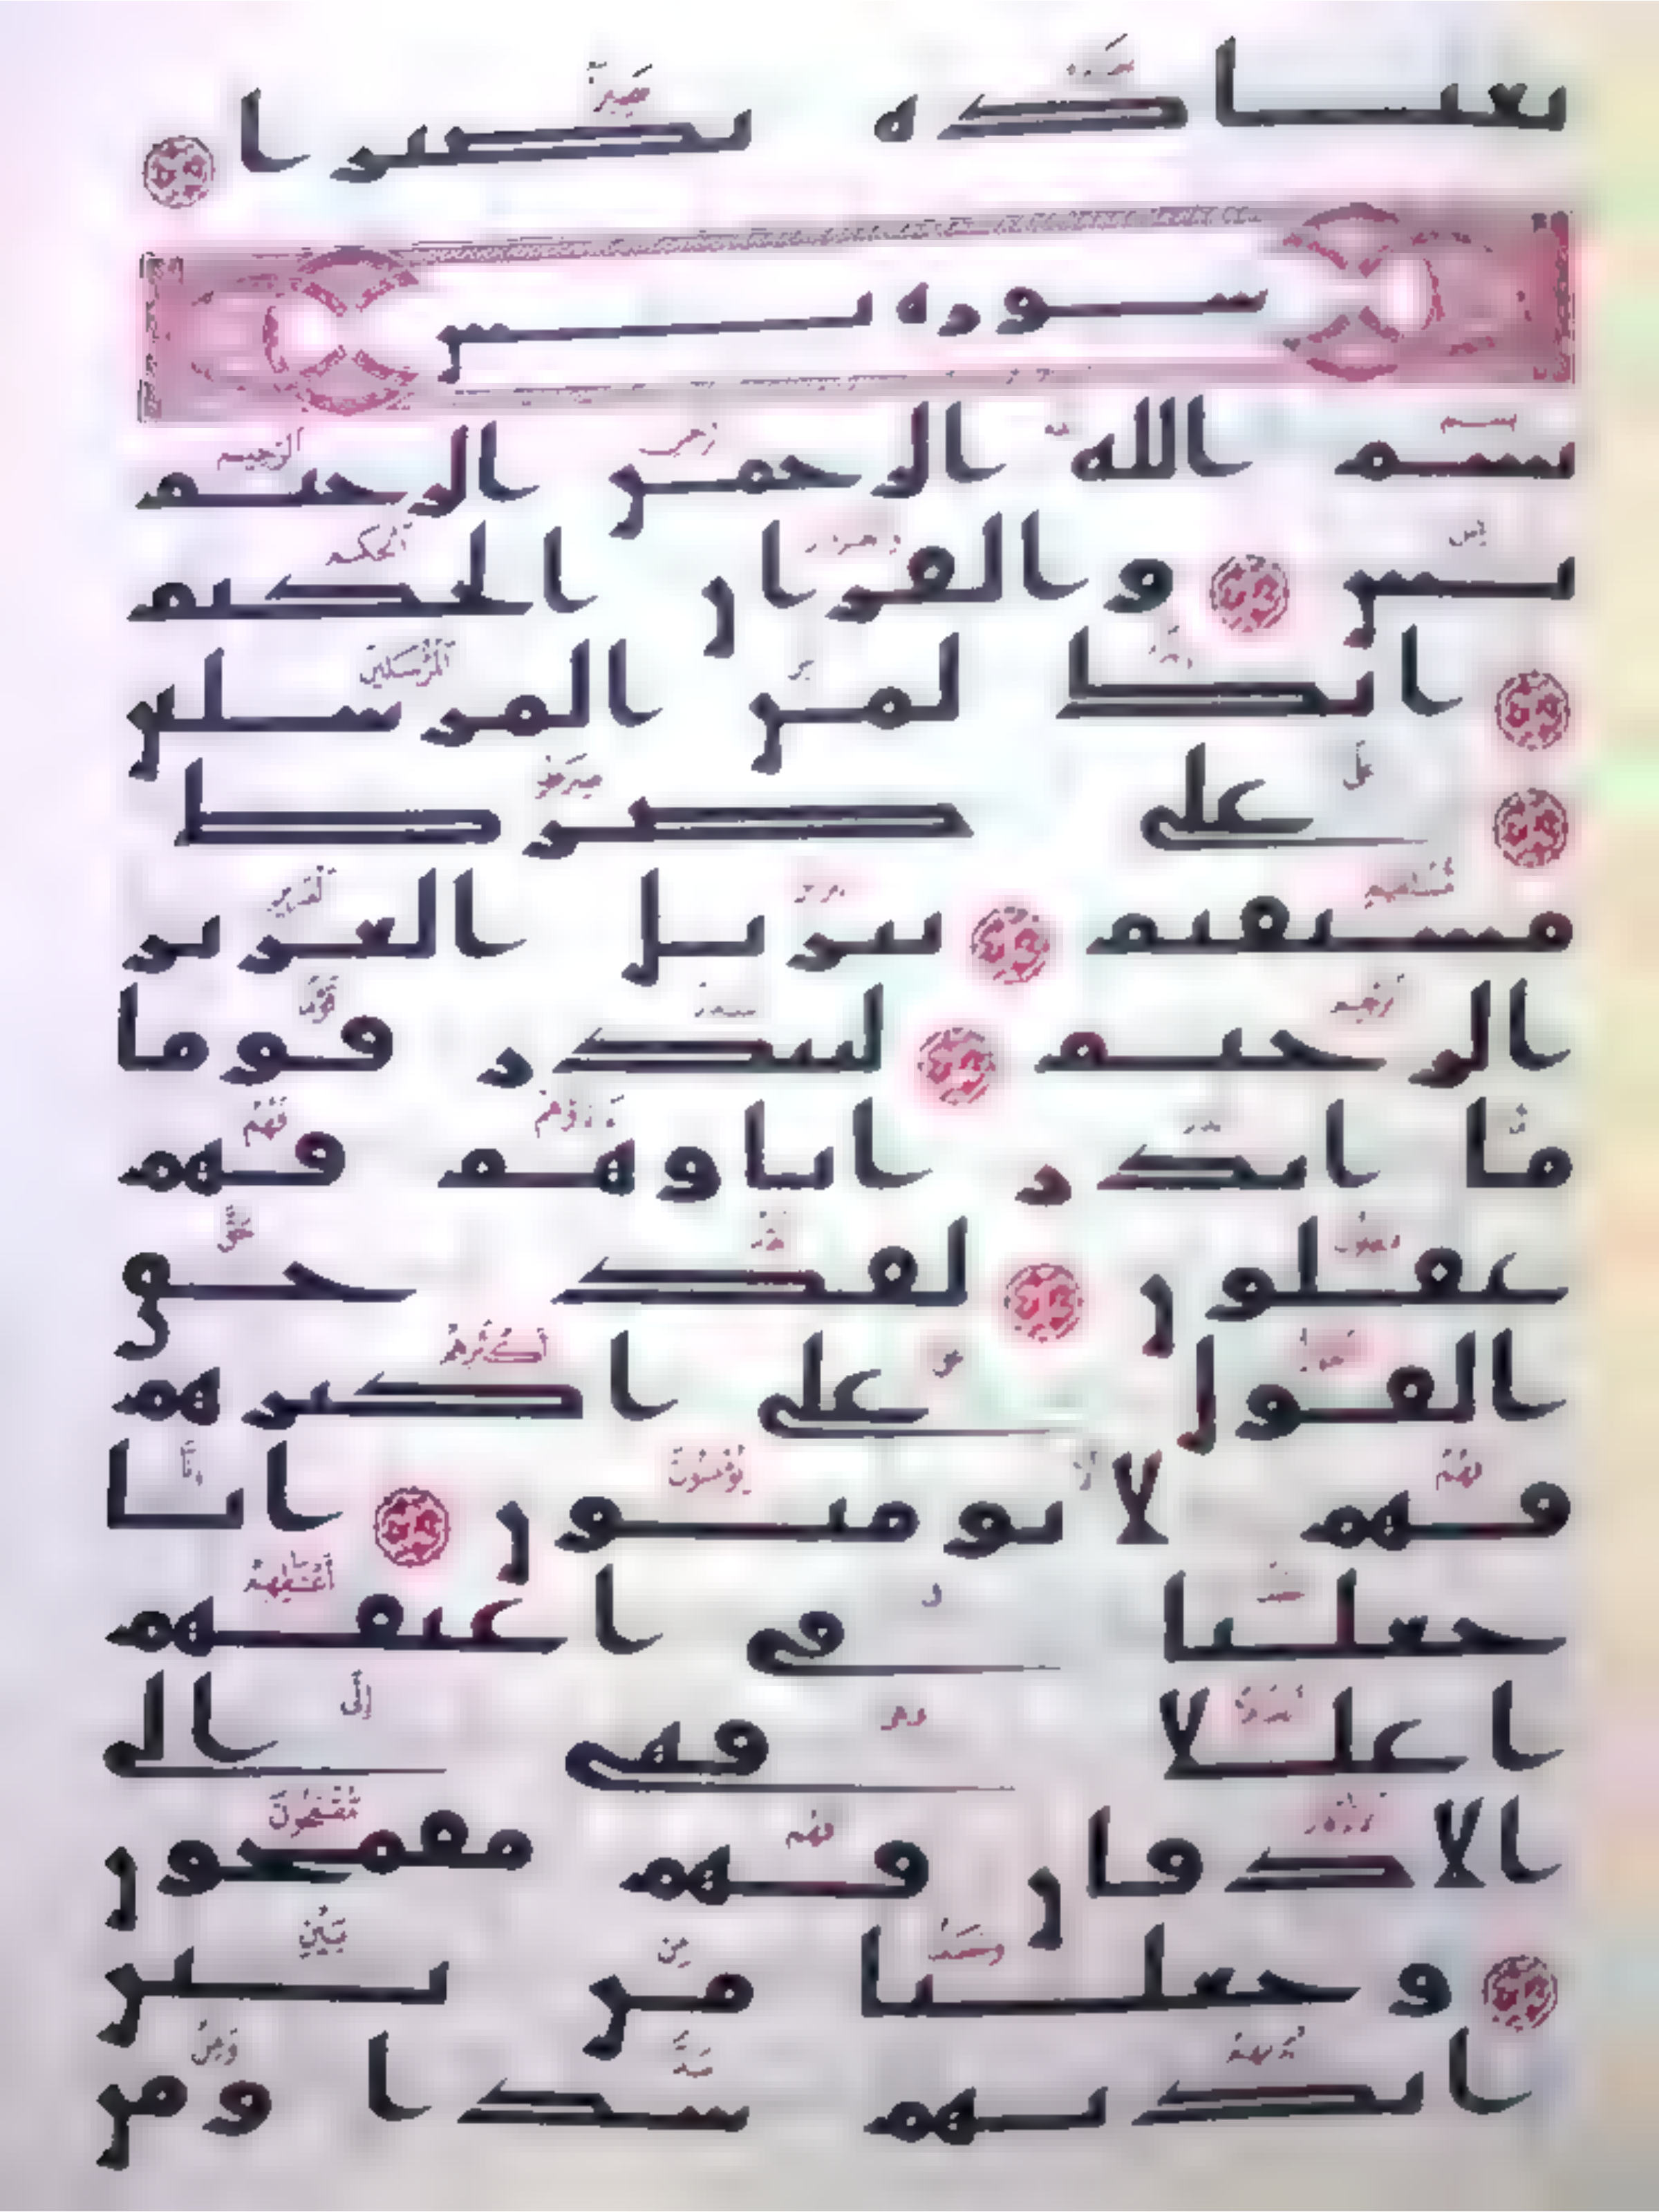 بعباده بصيرا
سوره يس
بسم الله الرحمن الرحيم
يس والقران الحكيم
انك لمن المرسلين
على صرط
مستقيم تنزيل العزيز
الرحيم لتنذر قوما
ما انذر اباوهم فهم
غفلون لقد حق
القول على اكثرهم
فهم لا يومنون انا
جعلنا في اعنقهم
اغللا فهي الى
الاذقان فهم مقمحون
وجعلنا من بين
ايديهم سدا ومن